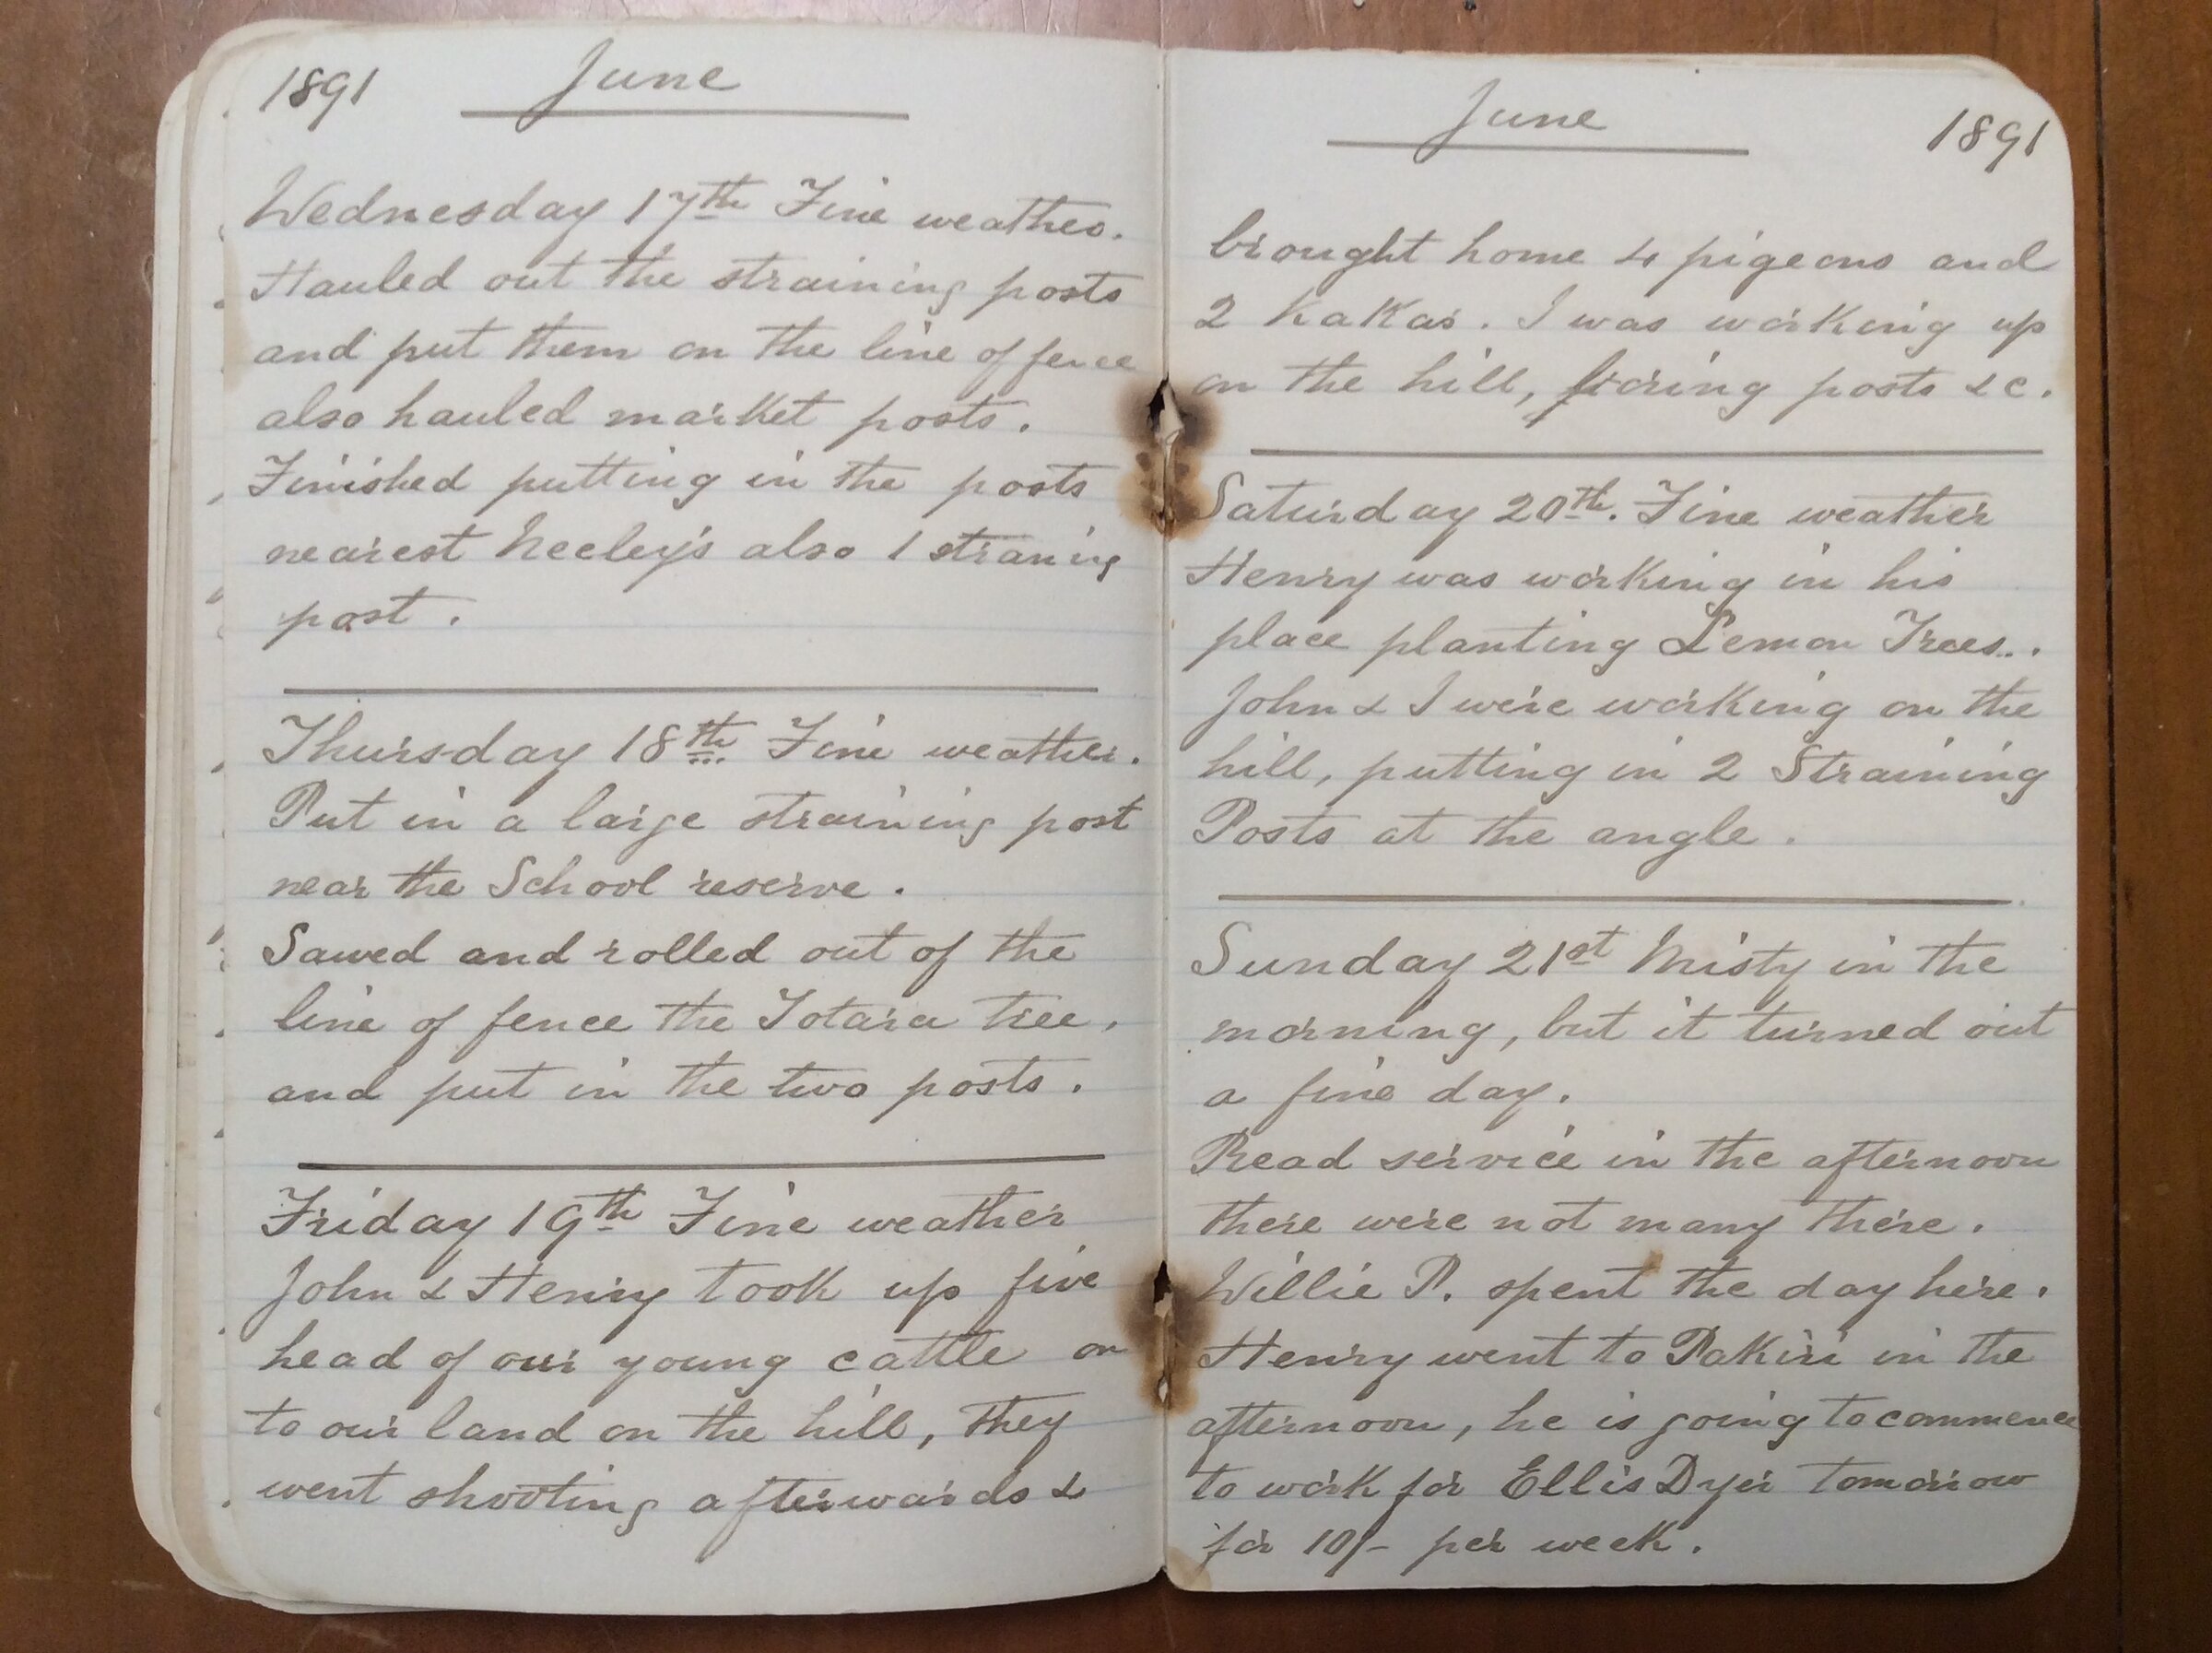 1891 June
Wednesday 17th Fine weather.
Hauled out the straining posts
and put them on the line of fence
also hauled market posts.
Finished putting in the posts
nearest Neeley's also 1 straning
post.
Thursday 18th Fine weather.
Put in a large straining post
near the School reserve.
Sawed and rolled out of the
line of fence the Totara tree,
and put in the two posts.
Friday 19th Fine weather
John & Henry took up five
head of our young cattle on
to our land on the hill, they
went shooting afterwards &
June 1891
brought home 4 pigeons and
2 KaKas. I was working up
on the hill, posts &c.
Saturday 20th. Fine weather
Henry was working in his
place planting Lemon Trees..
John & I were working on the
hill, putting in 2 Straining
Posts at the angle.
Sunday 21st Misty in the
morning, but it turned out
a fine day.
Read service in the afternoon
there were not many there.
Willie P. spent the day here.
Henry went to Pakiri in the
afternoon, he is going to commence
to work for Ellis Dyer tomorrow
for 10/- per week.